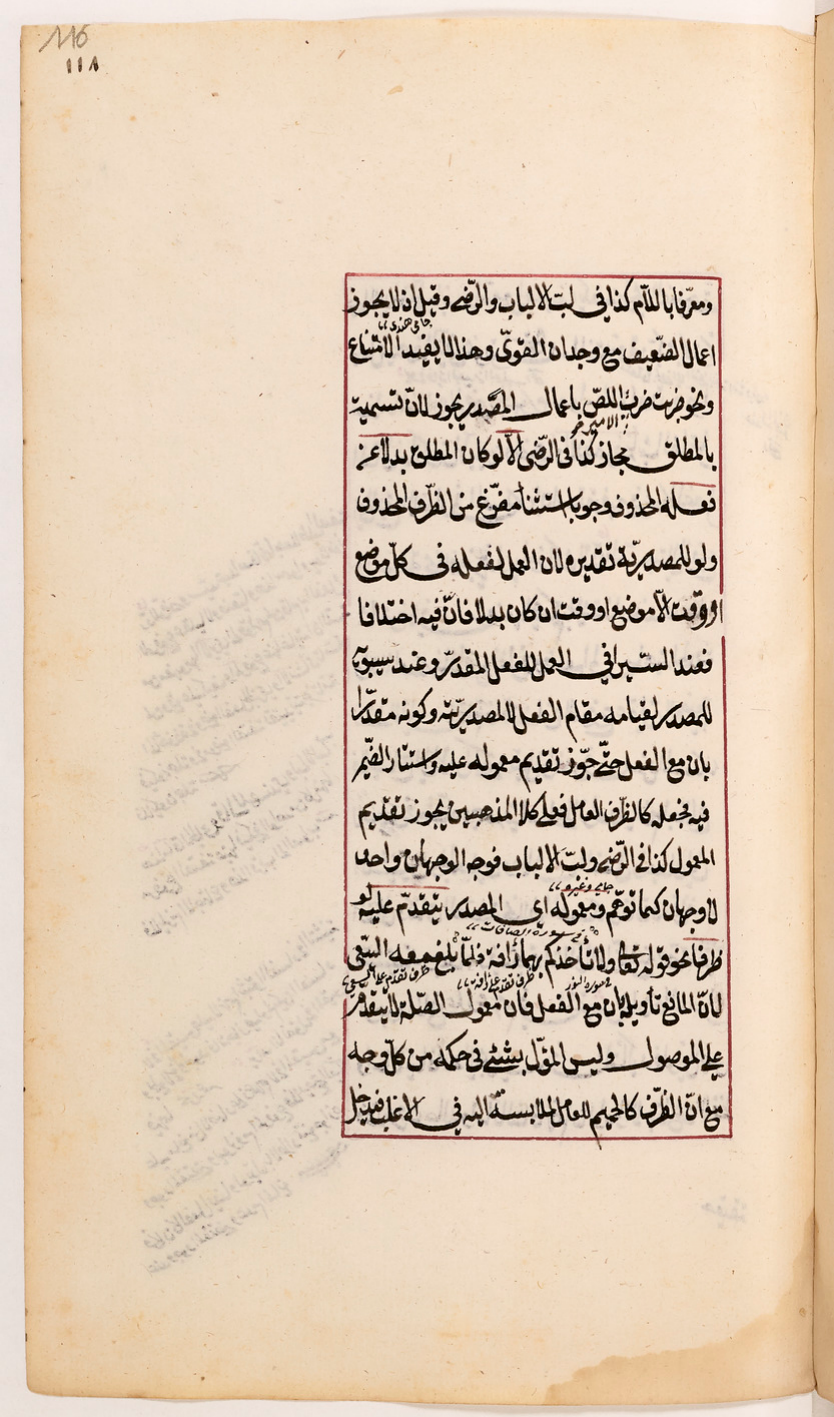 116
١١٨
ومعرّفا باللّام كذا فى لبّ الالباب والرّضى وقيل اذ لا يجوز
اعمال الضّعيف مع وجدان القوىّ وهذا لا يفيد الامتناع
ونحو ضربت ضرب اللصّ باعمال المصدر يجوز لانّ تسميته
بالمطلق مجاز كذا فى الرّضى الّا لو كان المطلق بدلا عن
فعله المحذوف وجوبا استثنأ مفرّغ من الظّرف المحذوف
ولو للمصدريّة تقديره لان العمل لفعله فى كلّ موضع
او وقت الّا موضع او وقت ان كان بدلا فانّ فيه اختلافا
فعند السّيرافى العمل للفعل المقدّر وعند سيبويه
للمصدر لقيامه مقام الفعل لا لمصدريّته وكونه مقدّرا
بان مع الفعل حتّى جوّز تقديم معموله عليه واستتار الضّمير
فيه بجعله كالظّرف العامل فعلى كلا المذهبين يجوز تقديم
المعمول كذا فى الرّضى ولبّ الالباب فوجه الوجهان واحد
لا وجهان كما توهّم ومعموله اى المصدر يتقدّم عليه لو
فى سورة الصافات
ظرفا نحو قوله تعالى ولا تأخذكم بهما رأفة فلمّا بلغ معه السّعى
فى سورة النور
لانّ المانع تأويله بان مع الفعل فان معمول الصّلة لا يتقدّم
على الموصول وليس المؤوّل بشئ فى حكمه من كلّ وجه
مع انّ الظّرف كالحميم للعامل لملابسته اليه فى الاغلب فيدخل